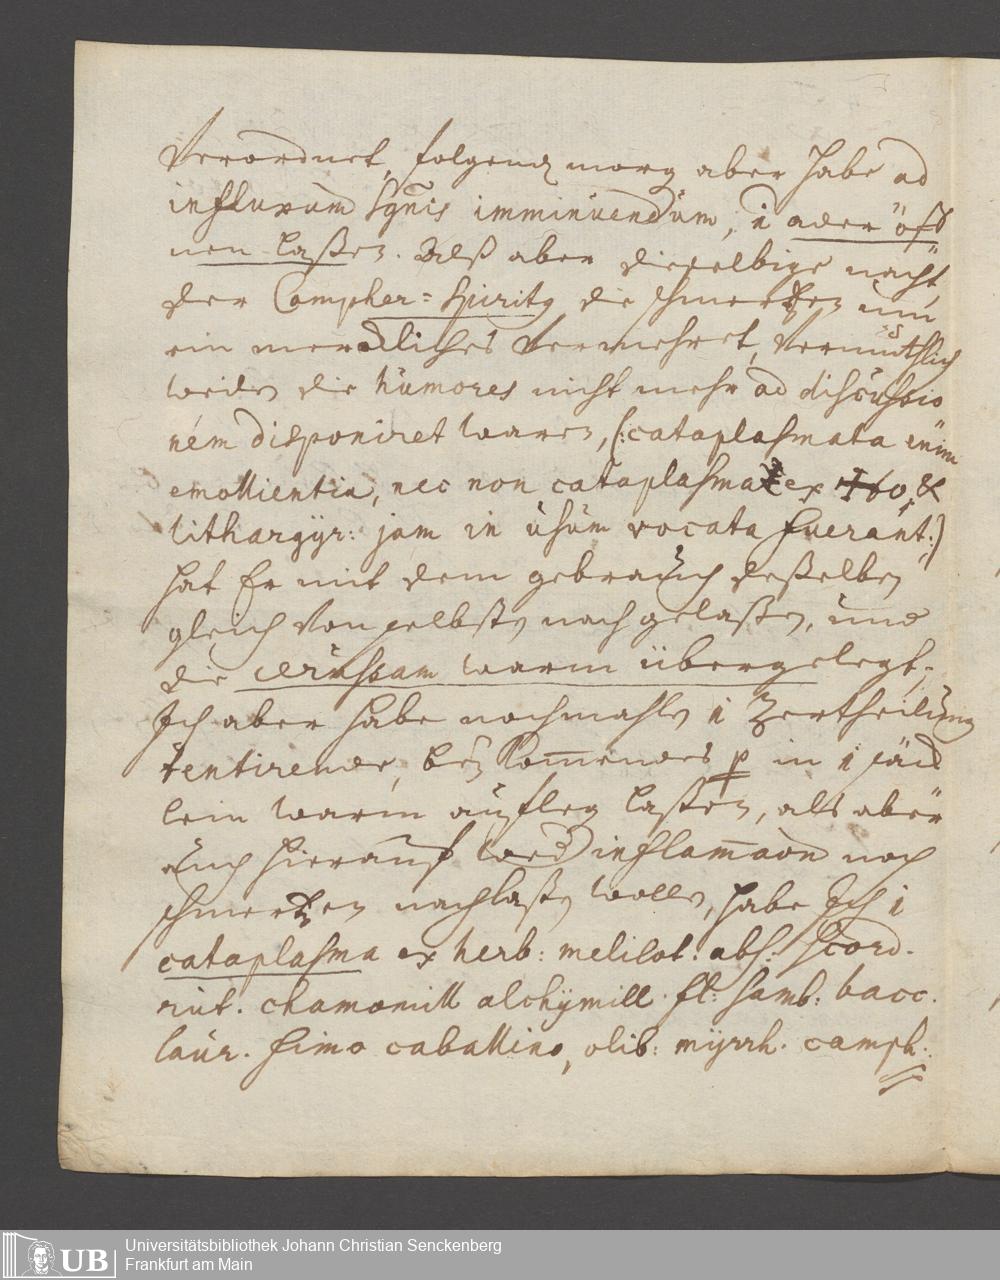 Verordnet, folgend morg aber habe ad
influxum sgnis imminuendum, 1 ader öff
nen laßen. Alß aber dieselbige nacht
der Campher-Spirity die schmertzen um
ein merckliches Vermehret, Vermuthlich
weilen die humores nicht mehr ad discussio
nem disponiret waren, (: cataplasmata enim
emollientia, nec non cataplasma ex &
lithargÿr: jam in usum vocata fuerant:)
hat Er mit dem gebrauch deßelben
gleich von selbsten nachgelaßen, und
die warm übergelegt,
Ich aber habe nochmahls 1 Zertheilung
tentirende, in 1 säck
lein warm aufleg laßen, als aber
auch hierauf wed inflam̄aon noch
schmertzen nachlaßen wollen, habe Ich 1
cataplasma ex herb: melilot: abs: scord.
rut. chamomill alchÿmill. fl: samb: bacc.
laur. fimo caballino, olib: mÿrrh. camph:
UB Universitätsbibliothek Johann Christian Senckenberg
Frankfurt am Main